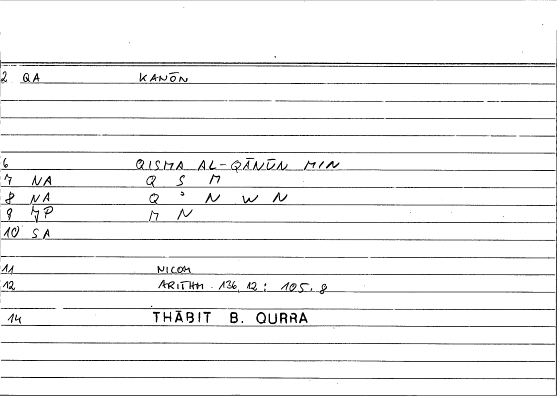 2 QA KANŌN
6 QISMA AL-QĀNŪN MIN
7 NA Q S M
8 NA Q ° N W N
9 JP M N
10 SA
11 NICOM
12 ARITHM. 136, 12 : 105. 8
14 THĀBIT B. QURRA